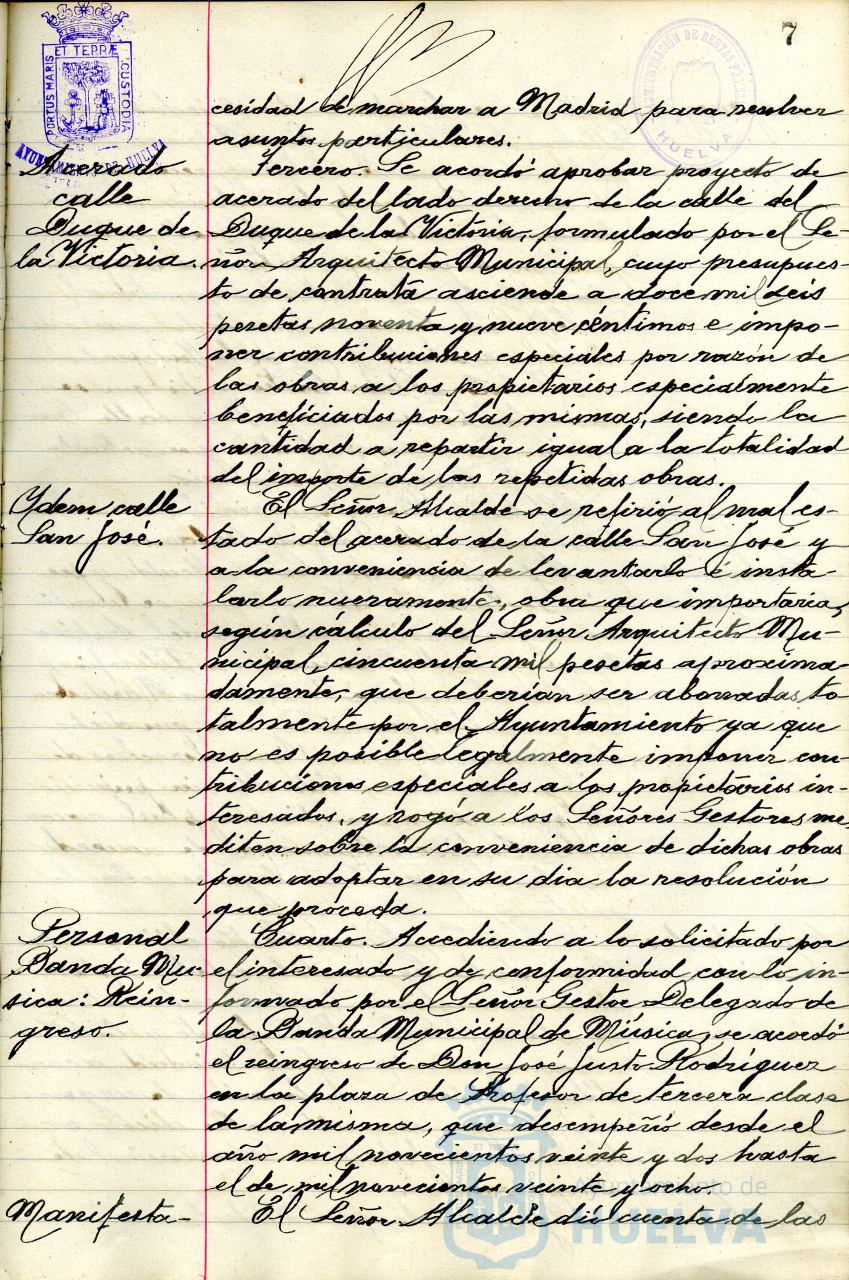 7
PORTUS MARIS ET TERRÆ CUSTODIA
AYUNTAMIENTO DE HUELVA
HUELVA
cesidad de marchar a Madrid para resolver
asuntos particulares.
Acerado
calle
Duque de
la Victoria.
Tercero. Se acordó aprobar proyecto de
acerado del lado derecho de la calle del
Duque de la Victoria, formulado por el Se-
ñor Arquitecto Municipal, cuyo presupues-
to de contrata asciende a doce mil seis
pesetas noventa y nueve céntimos e impo-
ner contribuciones especiales por razón de
las obras a los propietarios especialmente
beneficiados por las mismas, siendo la
cantidad a repartir igual a la totalidad
del importe de las repetidas obras.
Ydem calle
San José.
El Señor Alcalde se refirió al mal es-
tado del acerado de la calle San José y
a la conveniencia de levantarlo é insta-
larlo nuevamente, obra que importaria,
según cálculo del Señor Arquitecto Mu-
nicipal, cincuenta mil pesetas aproxima
damente, que deberian ser abonadas to
talmente por el Ayuntamiento ya que
no es posible legalmente imponer con-
tribuciones especiales a los propietarios in-
teresados, y rogó a los Señores Gestores me-
diten sobre la conveniencia de dichas obras
para adoptar en su dia la resolución
que proceda.
Personal
Banda Mu-
sica: Rein-
greso.
Cuarto. Accediendo a lo solicitado por
el interesado y de conformidad con lo in-
formado por el Señor Gestor Delegado de
la Banda Municipal de Música, se acordó
el reingreso de Don José Justo Rodríguez
en la plaza de Profesor de tercera clase
de la misma, que desempeñó desde el
año mil novecientos veinte y dos hasta
el de mil novecientos veinte y ocho.
Manifesta-
El Señor Alcalde dió cuenta de las
Ayuntamiento de
HUELVA